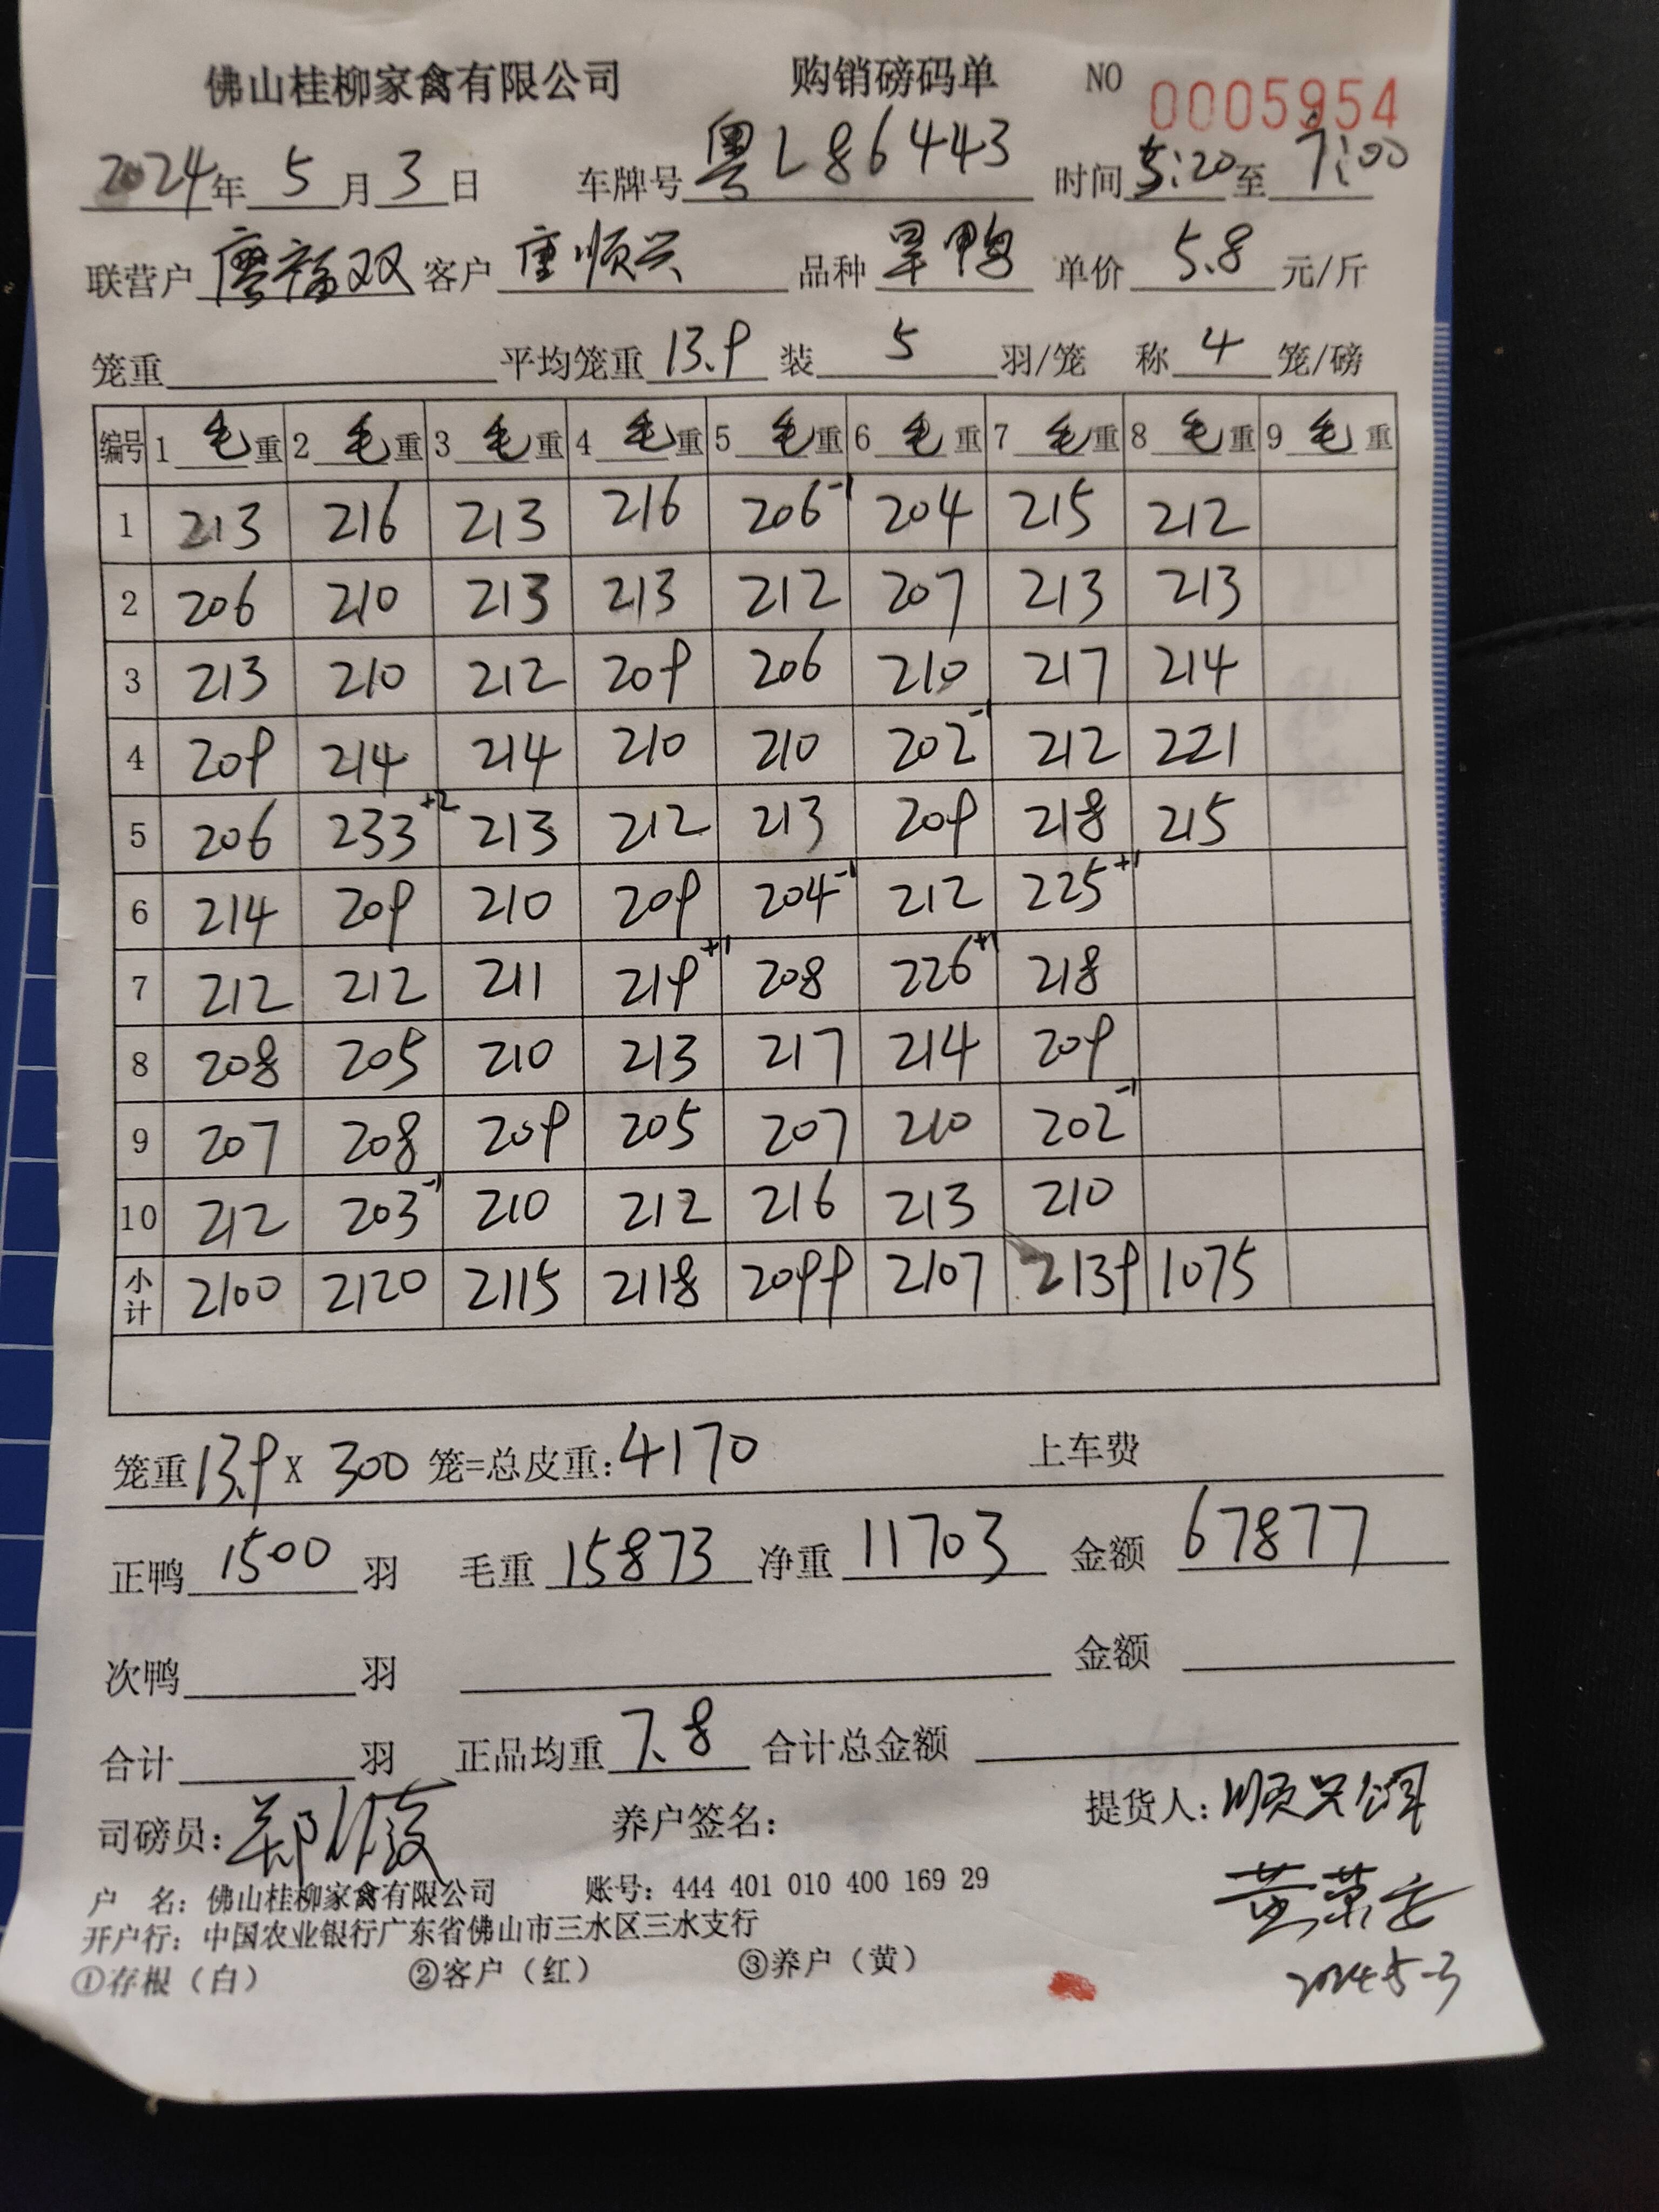 佛山桂柳家禽有限公司 购销磅码单 NO 0005954
2024年 5 月 3 日 车牌号 粤L86443 时间 5:20 至 7:00
联营户 廖福双 客户 唐顺兴 品种 旱鸭 单价 5.8 元/斤
笼重 平均笼重 13.9 装 5 羽/笼 称 4 笼/磅
编号 1 毛重 2 毛重 3 毛重 4 毛重 5 毛重 6 毛重 7 毛重 8 毛重 9 毛重
1 213 216 213 216 206-1 204 215 212
2 206 210 213 213 212 207 213 213
3 213 210 212 209 206 210 217 214
4 209 214 214 210 210 202-1 212 221
5 206 233+2 213 212 213 209 218 215
6 214 209 210 209 204-1 212 225+1
7 212 212 211 219+1 208 226+1 218
8 208 205 210 213 217 214 209
9 207 208 209 205 207 210 202-1
10 212 203-1 210 212 216 213 210
小计 2100 2120 2115 2118 2099 2107 2139 1075
笼重 13.9 X 300 笼=总皮重: 4170 上车费
正鸭 1500 羽 毛重 15873 净重 11703 金额 67877
次鸭 羽 金额
合计 羽 正品均重 7.8 合计总金额
司磅员: 养户签名: 提货人: 顺兴
户 名: 佛山桂柳家禽有限公司 账号: 444 401 010 400 169 29
黄荣
开户行: 中国农业银行广东省佛山市三水区三水支行
①存根（白） ②客户（红） ③养户（黄）
2024-5-3